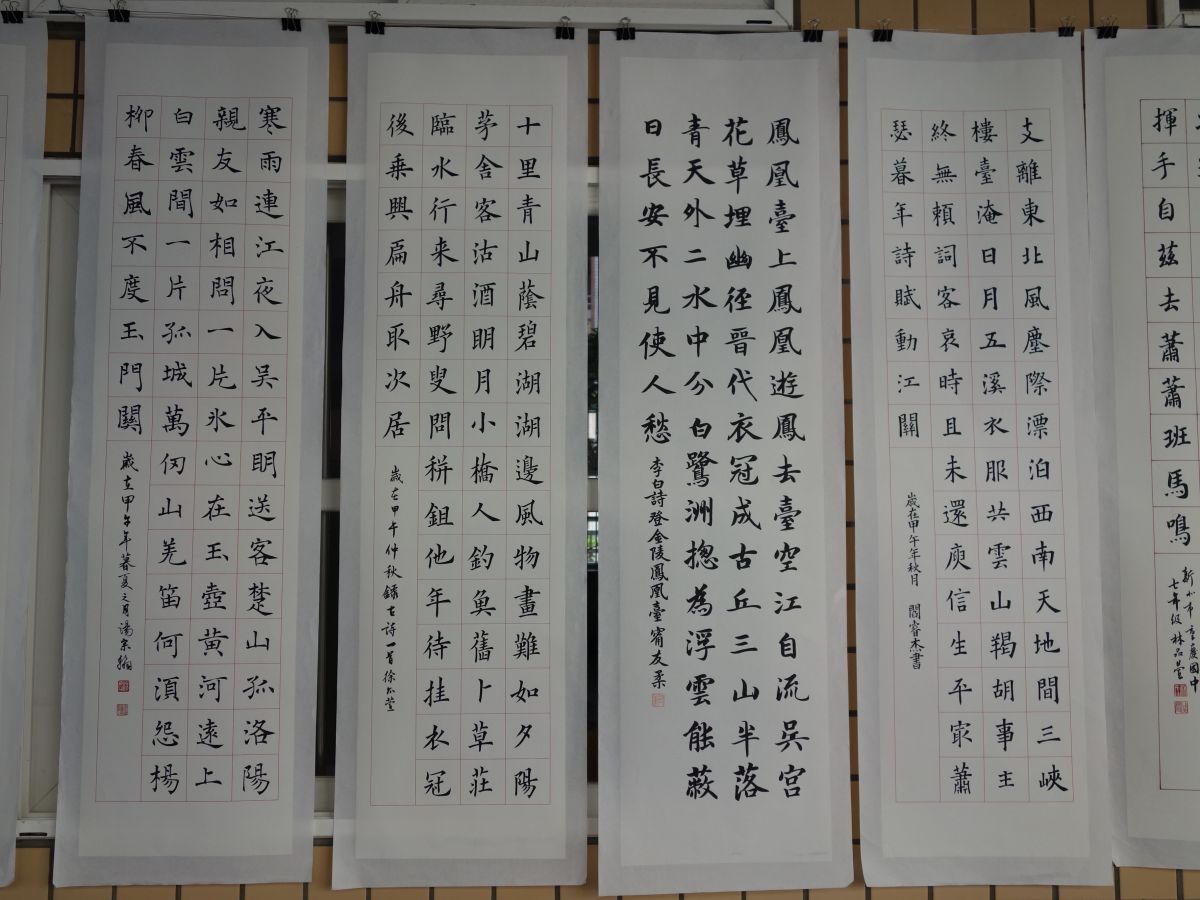 揮手自茲去蕭蕭班馬鳴
新北市重慶國中
七年級林品萱
支離東北風塵際漂泊西南天地間三峽
樓臺淹日月五溪衣服共雲山羯胡事主
終無賴詞客哀時且未還庾信生平冣蕭
瑟暮年詩賦動江關
歲在甲午年秋月 閻睿杰書
鳳凰臺上鳳凰遊鳳去臺空江自流吳宮
花草埋幽徑晉代衣冠成古丘三山半落
青天外二水中分白鷺洲摠為浮雲能蔽
日長安不見使人愁 李白詩登金陵鳳凰臺甯友柔
十里青山蔭碧湖湖邊風物畫難如夕陽
茅舍客沽酒明月小橋人釣魚舊卜草莊
臨水行来尋野叟問耕鉏他年待挂衣冠
後乗興扁舟取次居 歲在甲午仲秋錄古詩一首徐萱
寒雨連江夜入吳平明送客楚山孤洛陽
親友如相問一片氷心在玉壺黃河遠上
白雲間一片孤城萬仞山羌笛何湏怨楊
柳春風不度玉門關 歲在甲午年暮夏之月湯宗翰